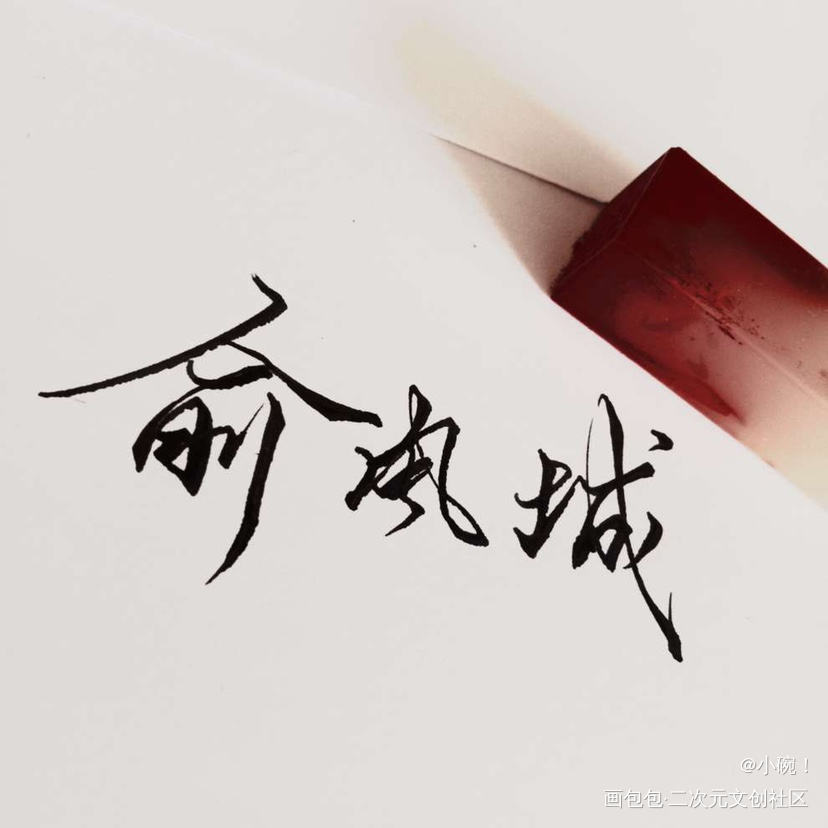 俞风城
@小碗！
画包包·二次元文创社区